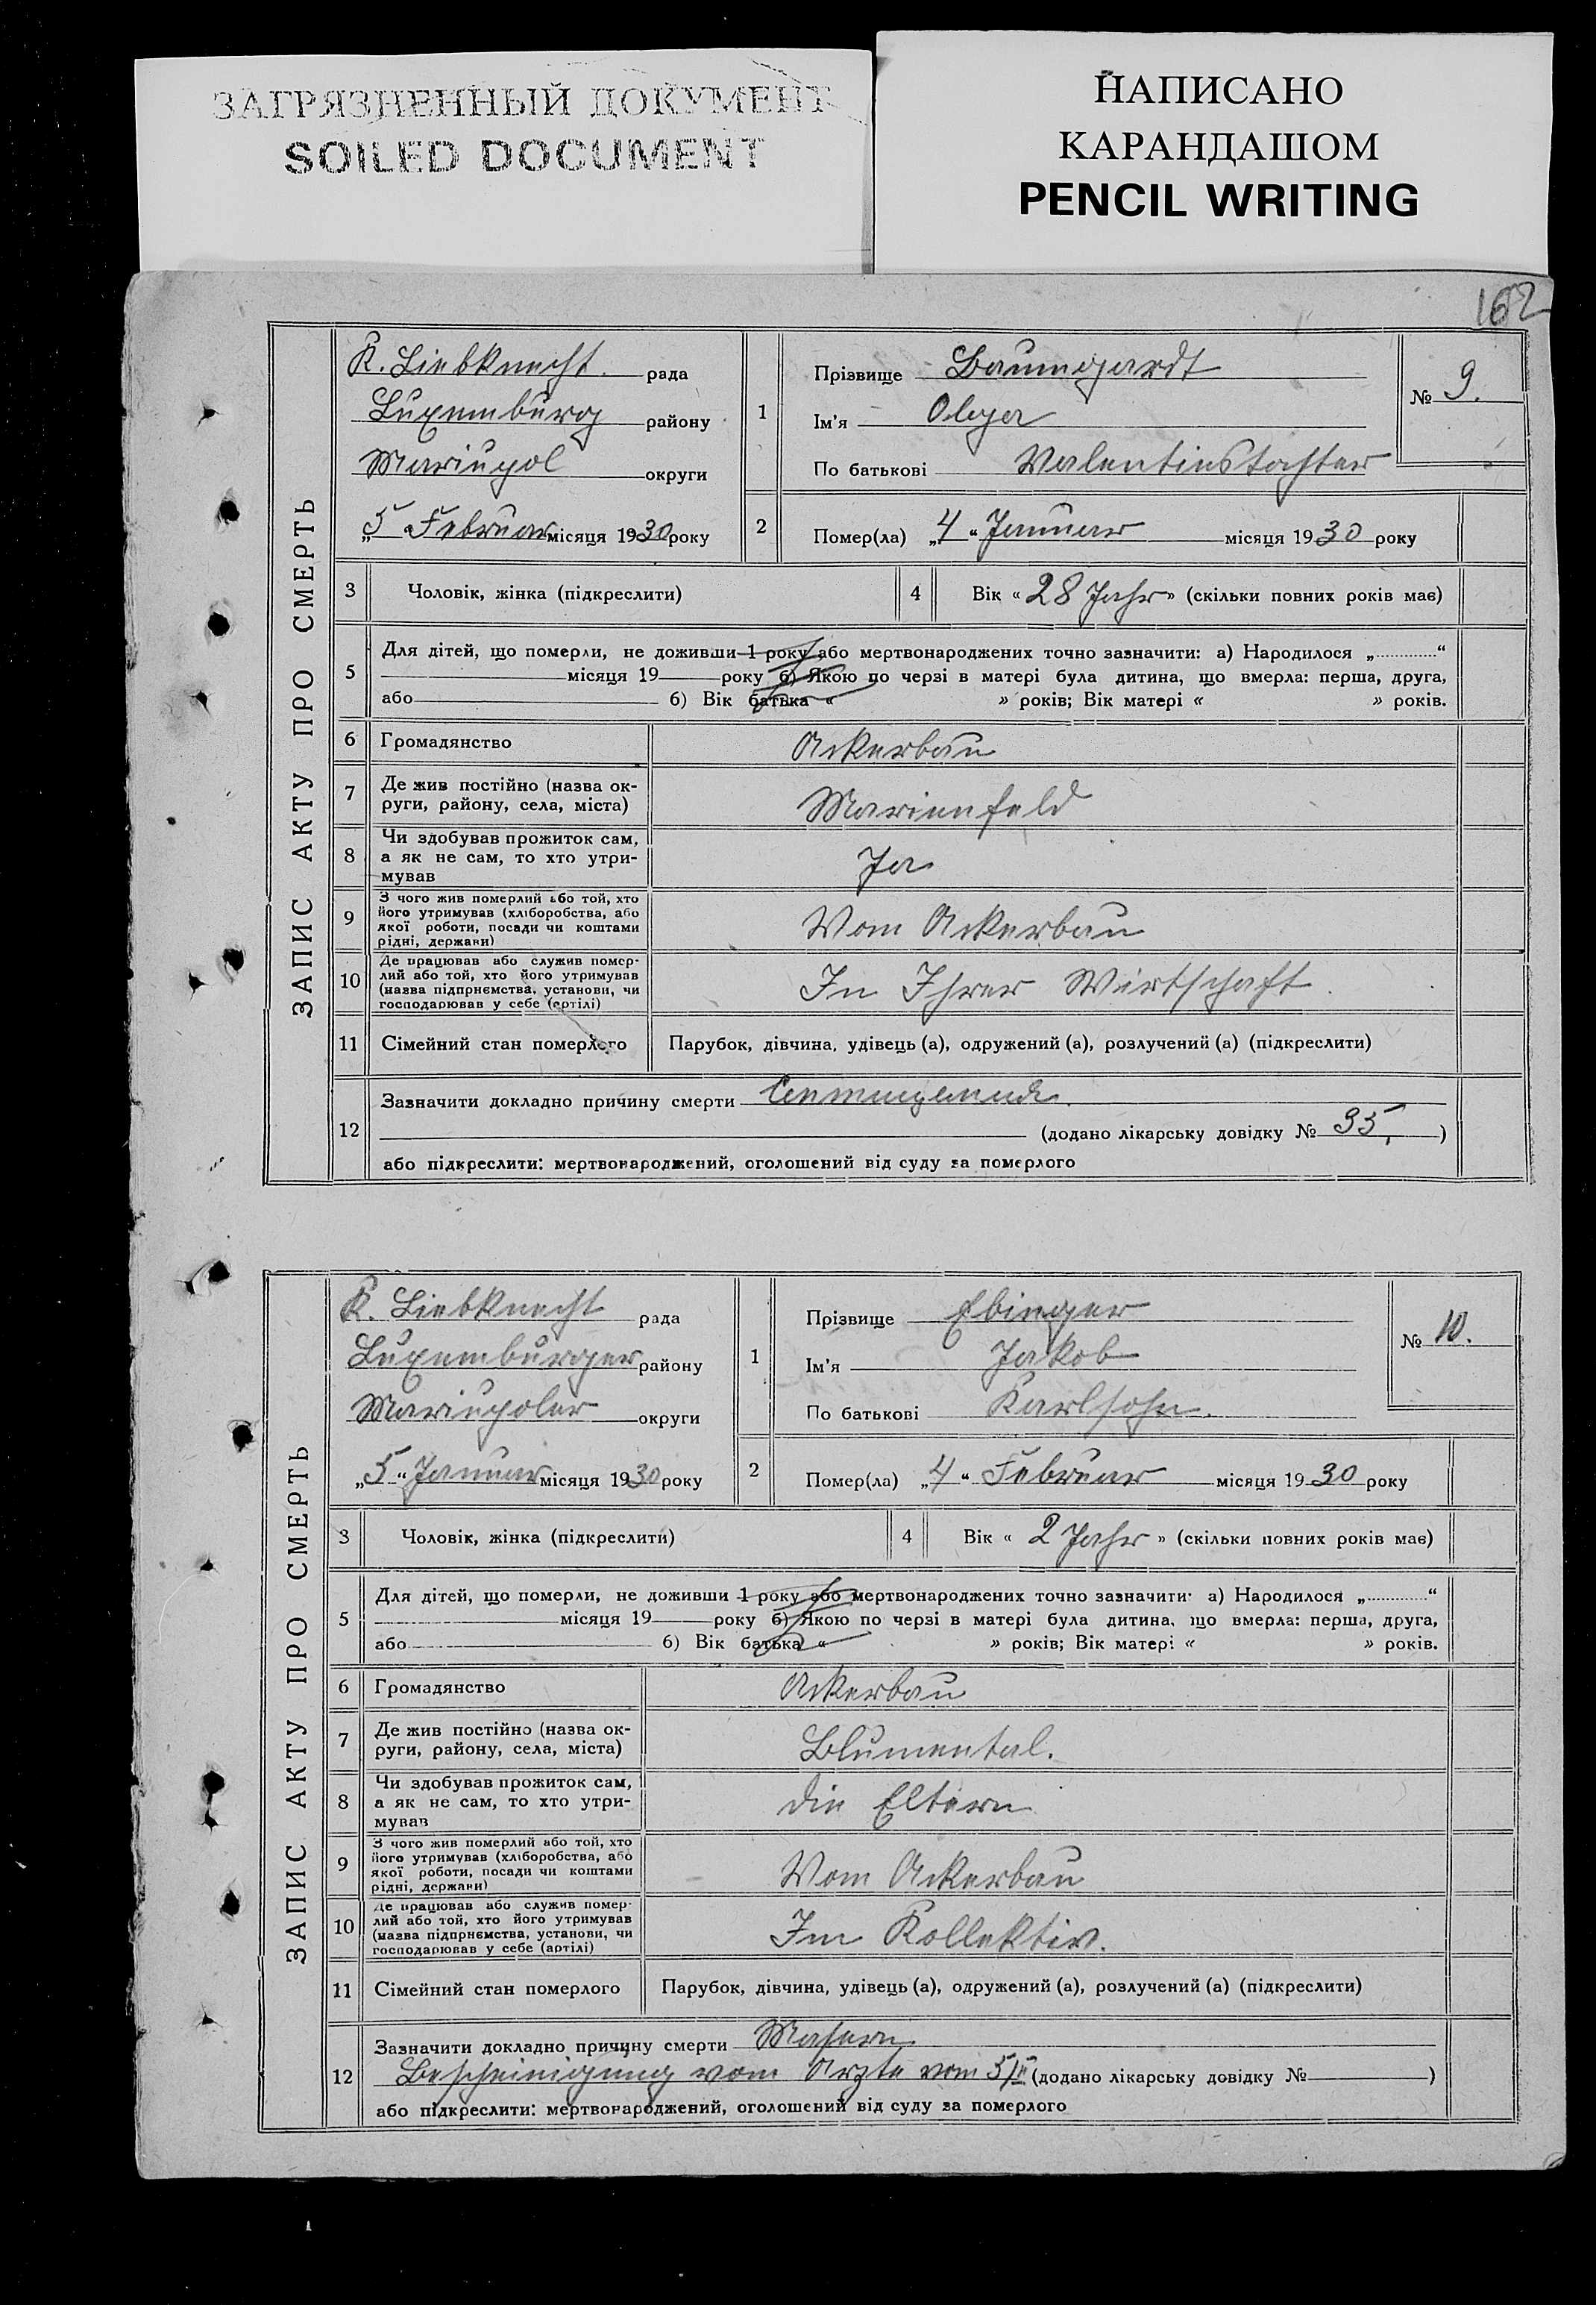 ЗАГРЯЗНЕННЫЙ ДОКУМЕНТ
SOILED DOCUMENT
НАПИСАНО
КАРАНДАШОМ
PENCIL WRITING
162
ЗАПИС АКТУ ПРО СМЕРТЬ
K. Liebknecht рада
Luxemburg району
Mariupol округи
„5“ Februar місяця 1930 року
1 Прізвище Baumgardt
Ім'я Olga
По батькові Valentinstochter
№ 9.
2 Помер(ла) „4“ Januar місяця 1930 року
3 Чоловік, жінка (підкреслити)
4 Вік « 28 Jahr » (скільки повних років має)
5 Для дітей, що померли, не доживши 1 року або мертвонароджених точно зазначити: а) Народилося „ “
місяця 19 року б) Якою по черзі в матері була дитина, що вмерла: перша, друга,
або б) Вік батька « » років; Вік матері « » років.
6 Громадянство Ackerbau
7 Де жив постійно (назва ок-
руги, району, села, міста) Marienfeld
8 Чи здобував прожиток сам,
а як не сам, то хто утри-
мував Ja
9 З чого жив померлий або той, хто
його утримував (хліборобства, або
якої роботи, посади чи коштами
рідні, держави) Vom Ackerbau
10 Де працював або служив помер-
лий або той, хто його утримував
(назва підприємства, установи, чи
господарював у себе (артілі) In Ihrer Wirtschaft.
11 Сімейний стан померлого Парубок, дівчина, удівець (а), одружений (а), розлучений (а) (підкреслити)
12 Зазначити докладно причину смерти
(додано лікарську довідку № 35, )
або підкреслити: мертвонароджений, оголошений від суду за померлого
ЗАПИС АКТУ ПРО СМЕРТЬ
K. Liebknecht рада
Luxemburger району
Mariupoler округи
„5“ Januar місяця 1930 року
1 Прізвище Ebinger
Ім'я Jakob
По батькові Karlsohn.
№ 10.
2 Помер(ла) „4“ Februar місяця 1930 року
3 Чоловік, жінка (підкреслити)
4 Вік « 2 Jahr » (скільки повних років має)
5 Для дітей, що померли, не доживши 1 року або мертвонароджених точно зазначити: а) Народилося „ “
місяця 19 року б) Якою по черзі в матері була дитина, що вмерла: перша, друга,
або б) Вік батька « » років; Вік матері « » років.
6 Громадянство Ackerbau
7 Де жив постійно (назва ок-
руги, району, села, міста) Blumental.
8 Чи здобував прожиток сам,
а як не сам, то хто утри-
мував die Eltern
9 З чого жив померлий або той, хто
його утримував (хліборобства, або
якої роботи, посади чи коштами
рідні, держави) Vom Ackerbau
10 Де працював або служив помер-
лий або той, хто його утримував
(назва підприємства, установи, чи
господарював у себе (артілі) Im Kollektiv.
11 Сімейний стан померлого Парубок, дівчина, удівець (а), одружений (а), розлучений (а) (підкреслити)
12 Зазначити докладно причину смерти Masern
Bescheinigung vom Arzte vom 5/II (додано лікарську довідку № )
або підкреслити: мертвонароджений, оголошений від суду за померлого